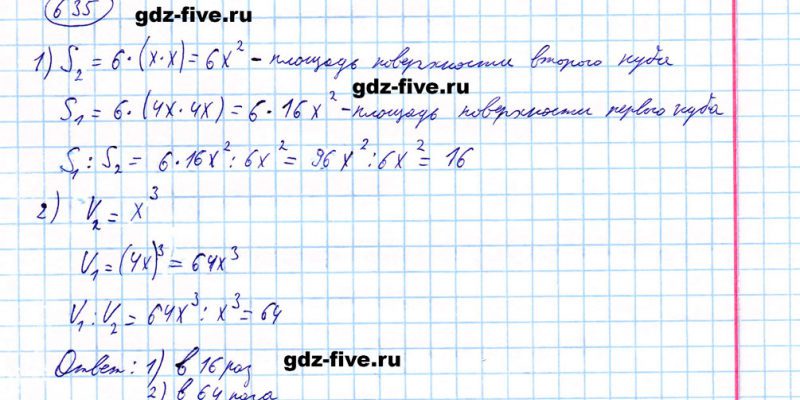 635
gdz-five.ru
1) S₂ = 6·(x·x) = 6x² – площадь поверхности второго куба
gdz-five.ru
S₁ = 6·(4x·4x) = 6·16x² – площадь поверхности первого куба
S₁ : S₂ = 6·16x² : 6x² = 96x² : 6x² = 16
2) V₂ = x³
V₁ = (4x)³ = 64x³
V₁ : V₂ = 64x³ : x³ = 64
Ответ: 1) в 16 раз
gdz-five.ru
2) в 64 раза